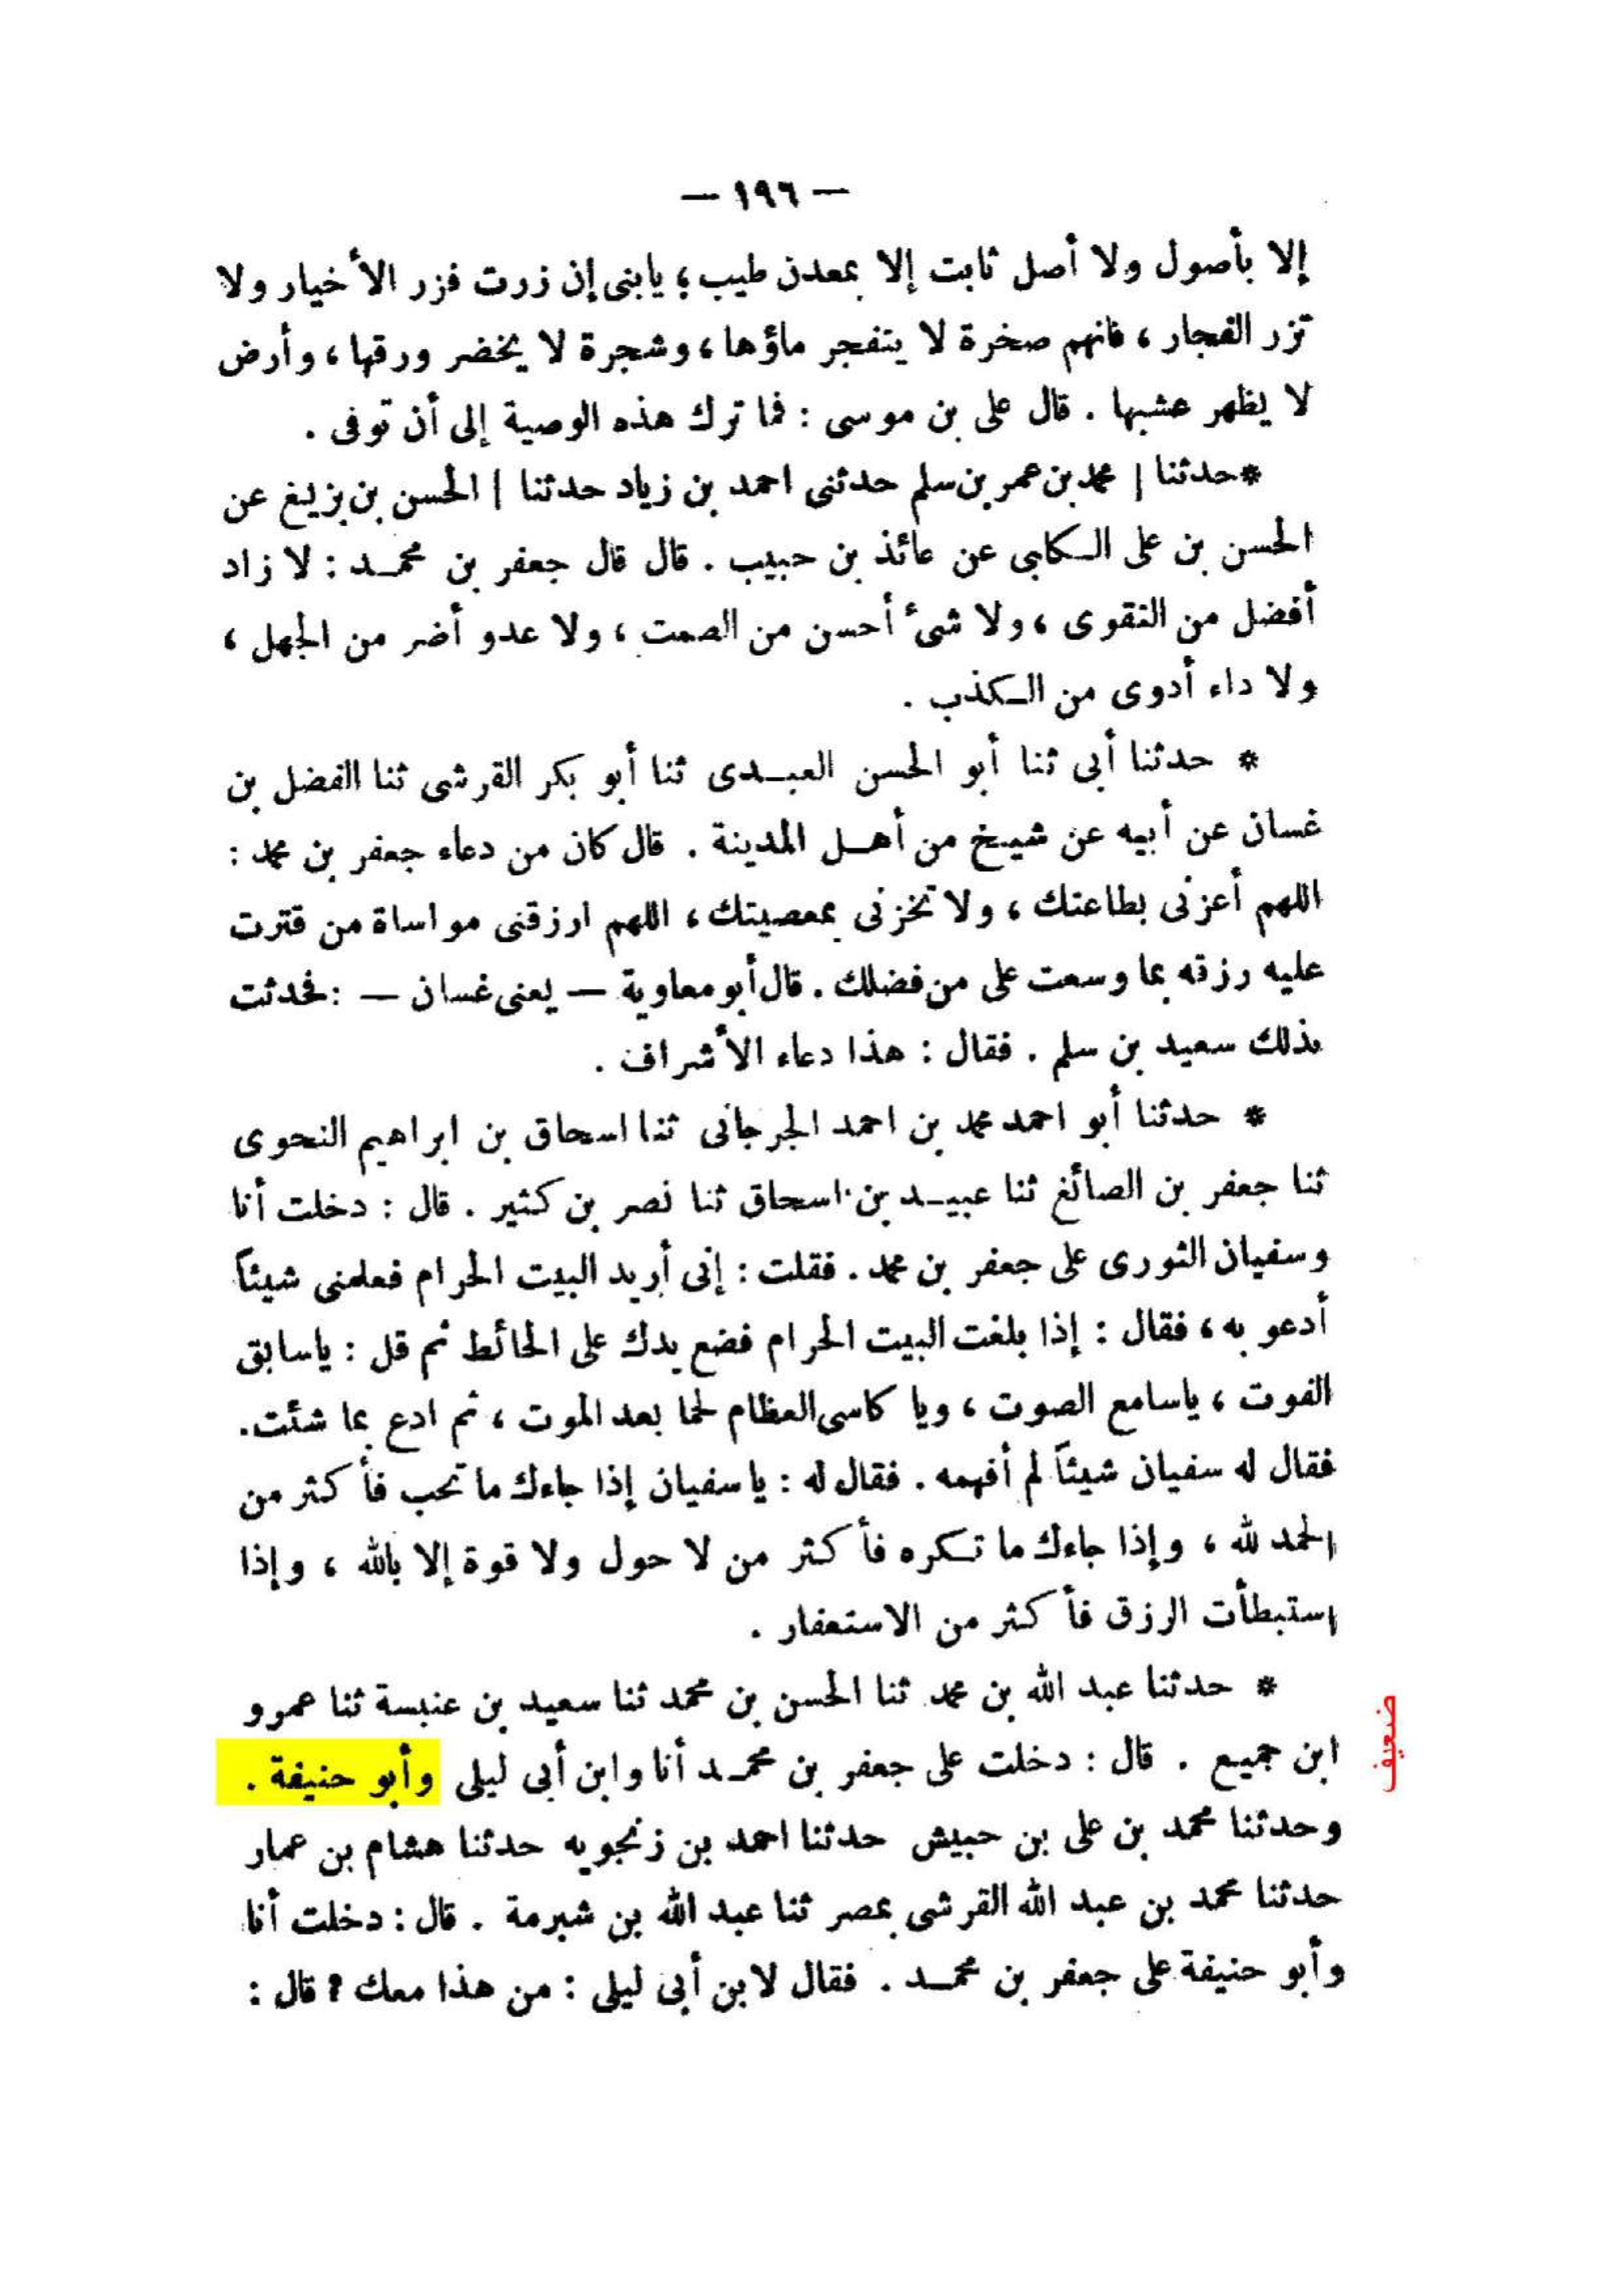 — ١٩٦ —
إلا بأصول ولا أصل ثابت إلا بمعدن طيب؛ يابنى إن زرت فزر الأخيار ولا
تزر الفجار، فانهم صخرة لا يتفجر ماؤها، وشجرة لا يخضر ورقها، وأرض
لا يظهر عشبها. قال على بن موسى: فما ترك هذه الوصية إلى أن توفى.
*حدثنا | محمد بن عمر بن سلم حدثنى احمد بن زياد حدثنا | الحسن بن بزيغ عن
الحسن بن على الكلبى عن عائذ بن حبيب. قال قال جعفر بن محمد: لا زاد
أفضل من التقوى، ولا شىء أحسن من الصمت، ولا عدو أضر من الجهل،
ولا داء أدوى من الكذب.
* حدثنا أبى ثنا أبو الحسن العبدى ثنا أبو بكر القرشى ثنا الفضل بن
غسان عن أبيه عن شيخ من أهل المدينة. قال كان من دعاء جعفر بن محمد:
اللهم أعزنى بطاعتك، ولا تخزنى بمعصيتك، اللهم ارزقنى مواساة من قترت
عليه رزقه بما وسعت على من فضلك. قال أبو معاوية — يعنى غسان —: فحدثت
بذلك سعيد بن سلم. فقال: هذا دعاء الأشراف.
* حدثنا أبو احمد محمد بن احمد الجرجانى ثنا اسحاق بن ابراهيم النحوى
ثنا جعفر بن الصائغ ثنا عبيد بن اسحاق ثنا نصر بن كثير. قال: دخلت أنا
وسفيان الثورى على جعفر بن محمد. فقلت: إنى أريد البيت الحرام فعلمنى شيئاً
أدعو به، فقال: إذا بلغت البيت الحرام فضع يدك على الحائط ثم قل: ياسابق
الفوت، ياسامع الصوت، ويا كاسى العظام لحما بعد الموت، ثم ادع بما شئت.
فقال له سفيان شيئاً لم أفهمه. فقال له: يا سفيان إذا جاءك ما تحب فأكثر من
الحمد لله، وإذا جاءك ما تكره فأكثر من لا حول ولا قوة إلا بالله، وإذا
استبطأت الرزق فأكثر من الاستغفار.
* حدثنا عبد الله بن محمد ثنا الحسن بن محمد ثنا سعيد بن عنبسة ثنا عمرو
ابن جميع. قال: دخلت على جعفر بن محمد أنا وابن أبى ليلى وأبو حنيفة.
ضعيف
وحدثنا محمد بن على بن حبيش حدثنا احمد بن زنجويه حدثنا هشام بن عمار
حدثنا محمد بن عبد الله القرشى بمصر ثنا عبد الله بن شبرمة. قال: دخلت أنا
وأبو حنيفة على جعفر بن محمد. فقال لابن أبى ليلى: من هذا معك؟ قال: